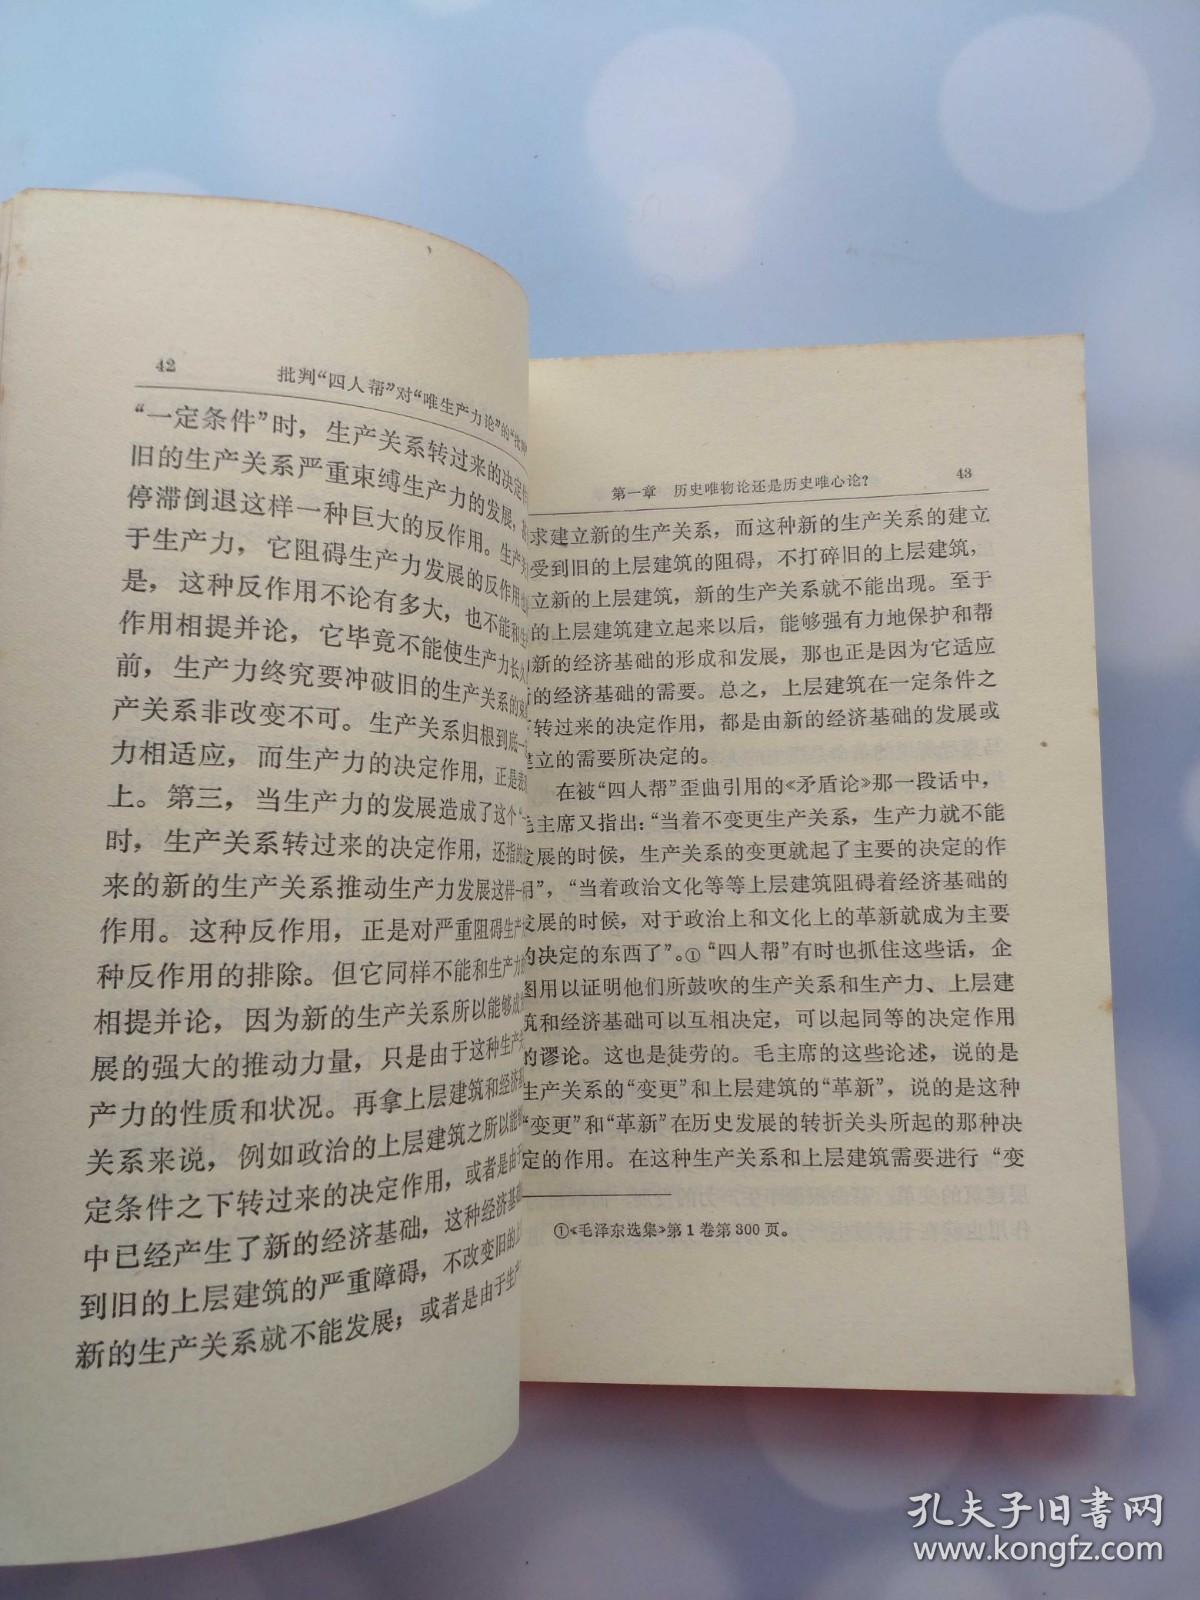 42
批判“四人帮”对“唯生产力论”的“批
“一定条件”时，生产关系转过来的决定
旧的生产关系严重束缚生产力的发展，
停滞倒退这样一种巨大的反作用。生产
于生产力，它阻碍生产力发展的反作用
是，这种反作用不论有多大，也不能和生
作用相提并论，它毕竟不能使生产力长久
前，生产力终究要冲破旧的生产关系的束
产关系非改变不可。生产关系归根到底一
力相适应，而生产力的决定作用，正是表
上。第三，当生产力的发展造成了这个“一
时，生产关系转过来的决定作用，还指的
来的新的生产关系推动生产力发展这样一
作用。这种反作用，正是对严重阻碍生产
种反作用的排除。但它同样不能和生产力的
相提并论，因为新的生产关系所以能够成
展的强大的推动力量，只是由于这种生产关
产力的性质和状况。再拿上层建筑和经济基
关系来说，例如政治的上层建筑之所以能
定条件之下转过来的决定作用，或者是由于
中已经产生了新的经济基础，这种经济基
到旧的上层建筑的严重障碍，不改变旧的上
新的生产关系就不能发展；或者是由于生产
第一章　历史唯物论还是历史唯心论？
43
求建立新的生产关系，而这种新的生产关系的建立
受到旧的上层建筑的阻碍，不打碎旧的上层建筑，
立新的上层建筑，新的生产关系就不能出现。至于
的上层建筑建立起来以后，能够强有力地保护和帮
新的经济基础的形成和发展，那也正是因为它适应
的经济基础的需要。总之，上层建筑在一定条件之
转过来的决定作用，都是由新的经济基础的发展或
建立的需要所决定的。
在被“四人帮”歪曲引用的《矛盾论》那一段话中，
毛主席又指出：“当着不变更生产关系，生产力就不能
发展的时候，生产关系的变更就起了主要的决定的作
用”，“当着政治文化等等上层建筑阻碍着经济基础的
发展的时候，对于政治上和文化上的革新就成为主要
的决定的东西了”。①“四人帮”有时也抓住这些话，企
图用以证明他们所鼓吹的生产关系和生产力、上层建
筑和经济基础可以互相决定，可以起同等的决定作用
的谬论。这也是徒劳的。毛主席的这些论述，说的是
生产关系的“变更”和上层建筑的“革新”，说的是这种
“变更”和“革新”在历史发展的转折关头所起的那种决
定的作用。在这种生产关系和上层建筑需要进行“变
①《毛泽东选集》第1卷第300页。
孔夫子旧书网
www.kongfz.com